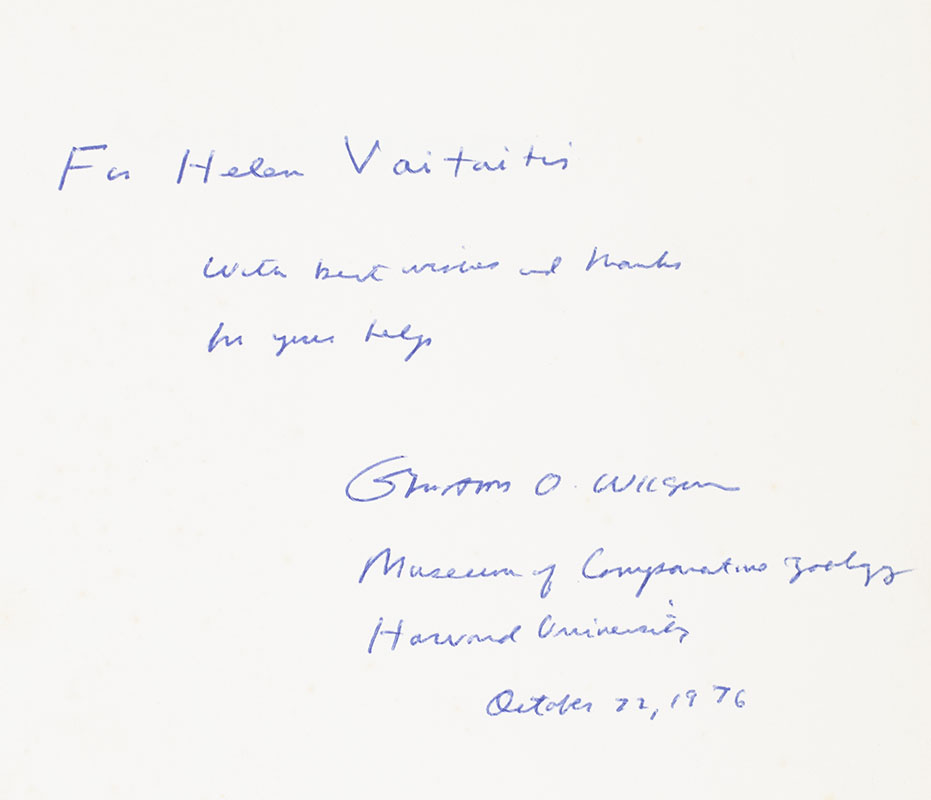 For Helen Vaitaitis
With best wishes and thanks
for your help
Edward O. Wilson
Museum of Comparative Zoology
Harvard University
October 22, 1976